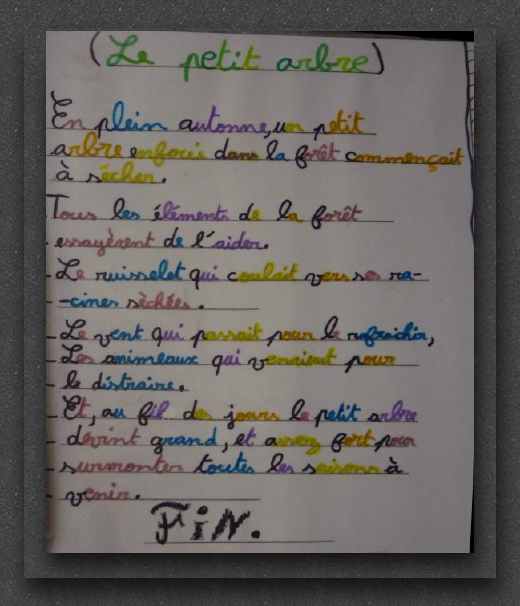 (Le petit arbre)
En plein automne, un petit
arbre enfoui dans la forêt commençait
à sécher.
Tous les éléments de la forêt
essayèrent de l'aider.
Le ruisselet qui coulait vers ses ra-
-cines sèchées.
Le vent qui passait pour le rafraichir,
Les animeaux qui venaient pour
le distraire.
Et, au fil des jours le petit arbre
devint grand, et assez fort pour
surmonter toutes les saisons à
venir.
FiN.